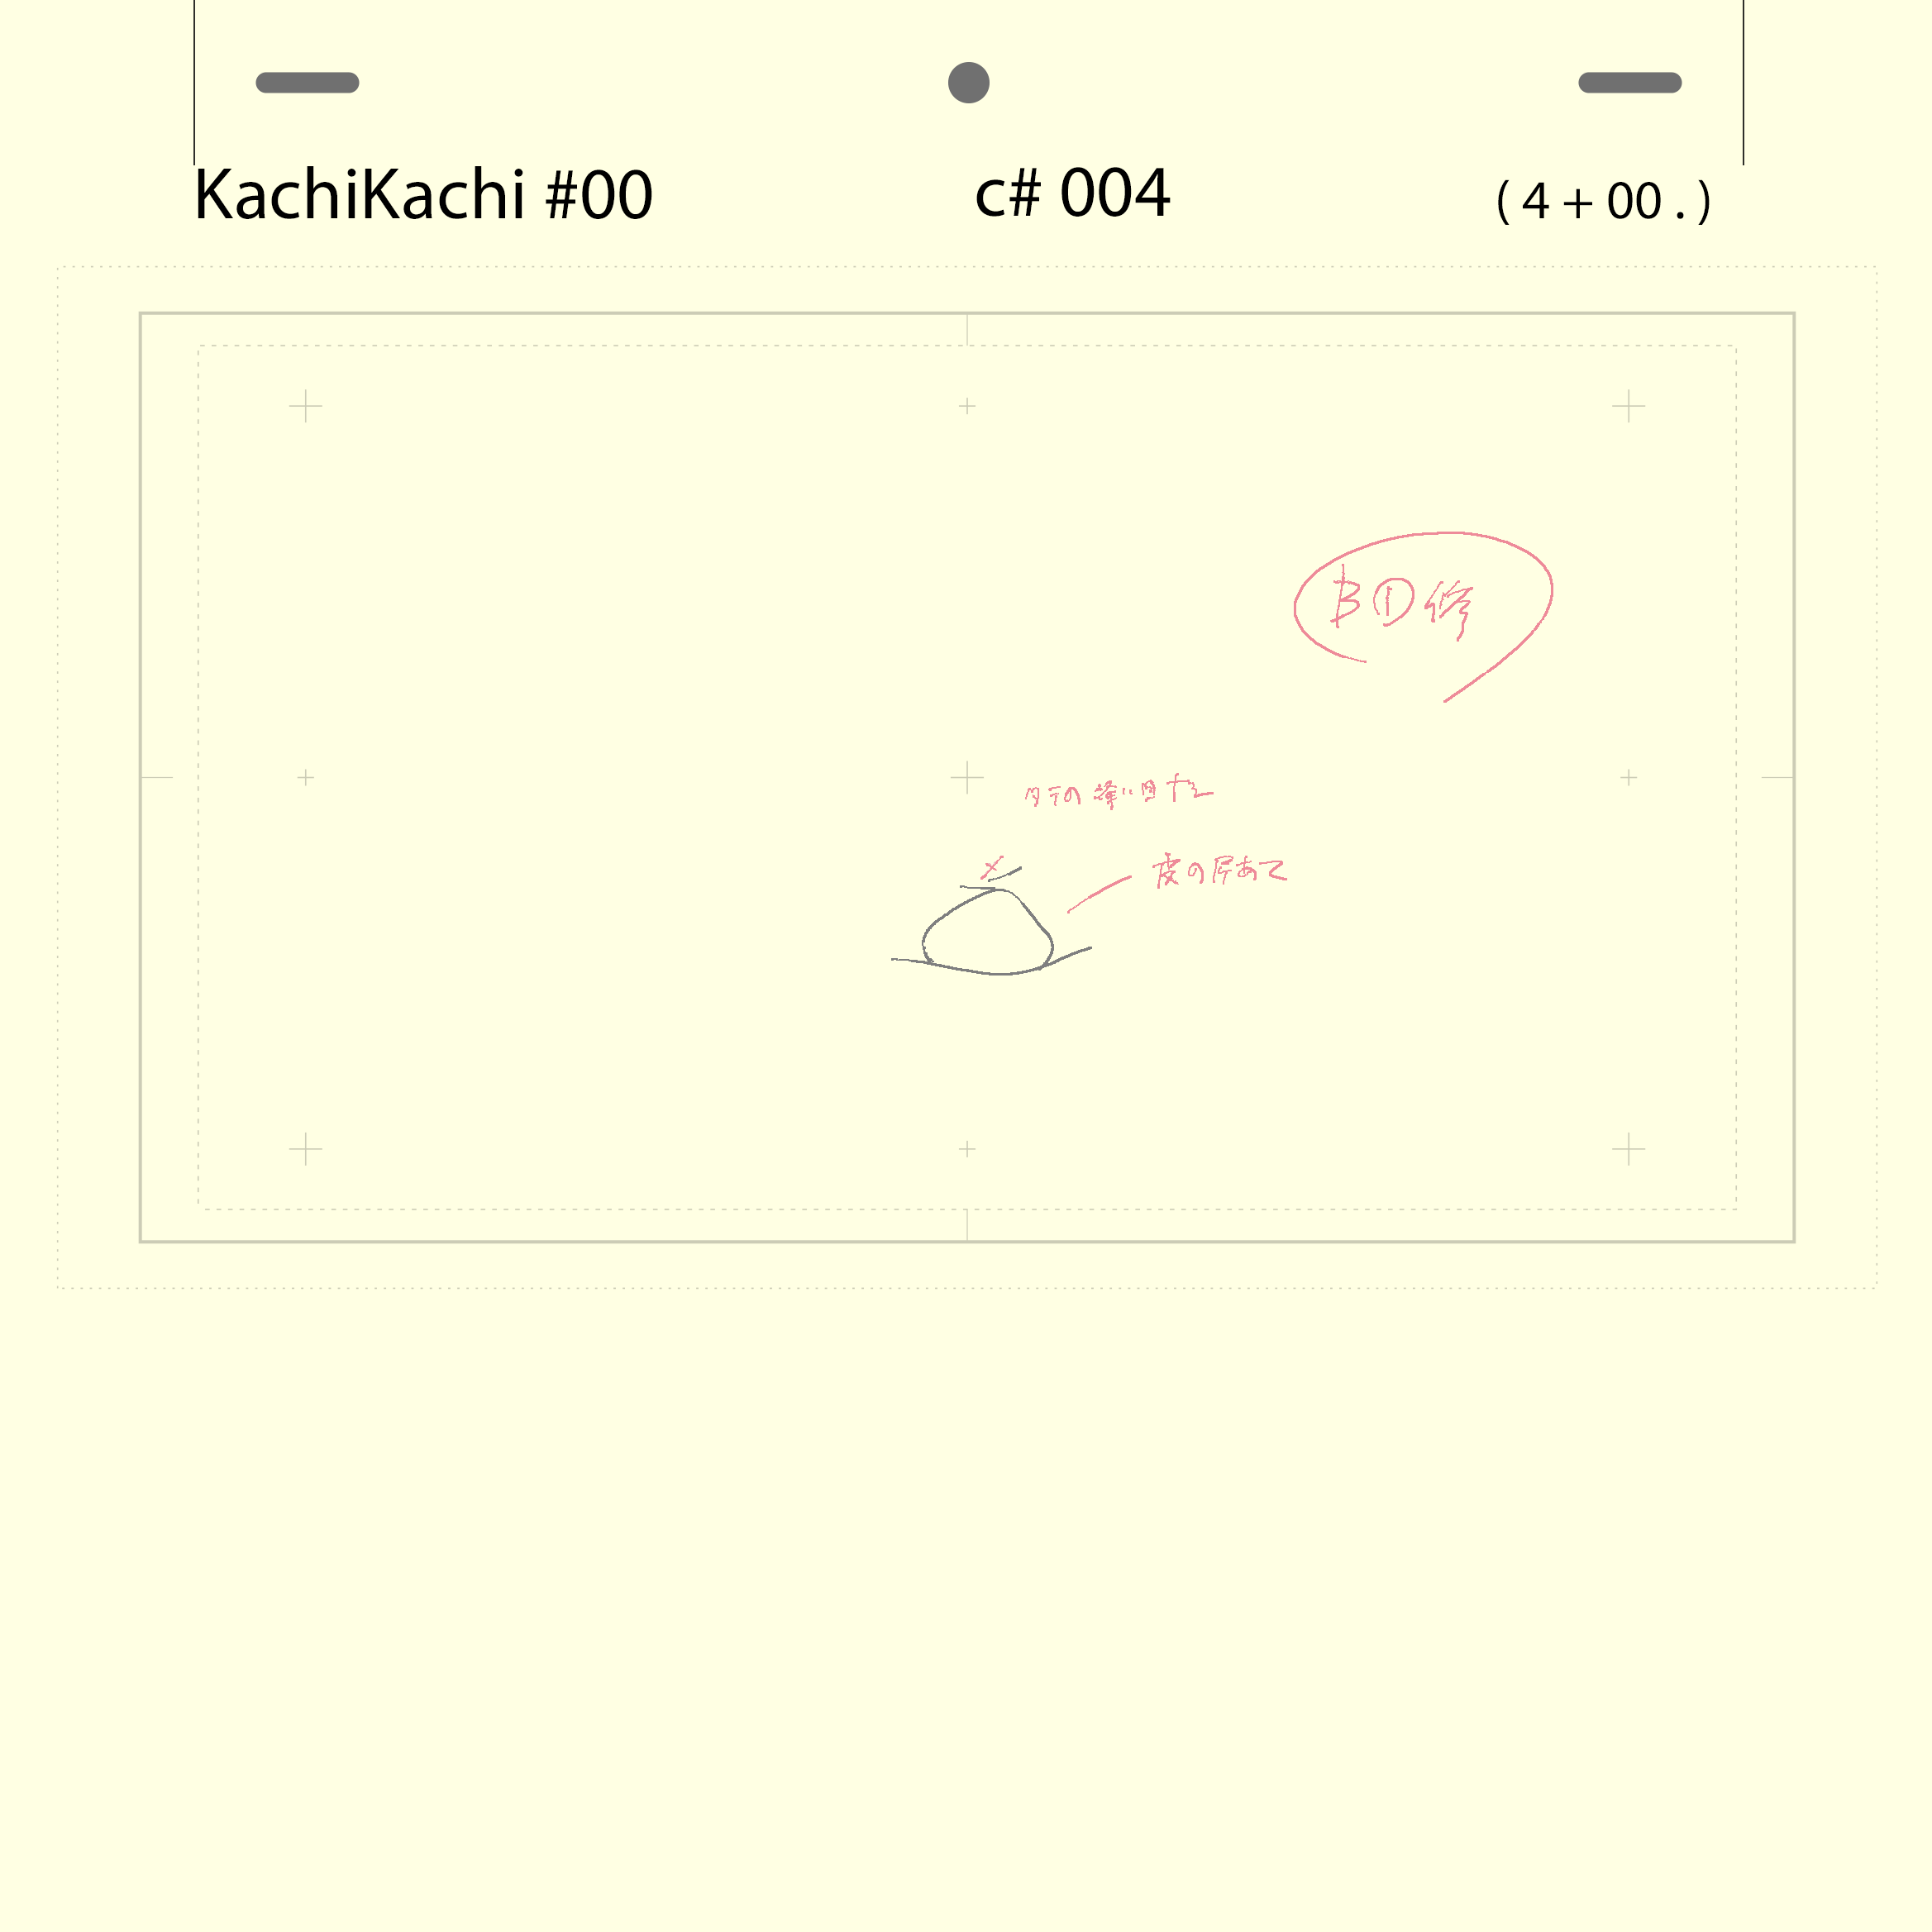 KachiKachi #00 c# 004 ( 4 + 00 . )
BD修
タテの縫い目ナシ
皮の尻あて